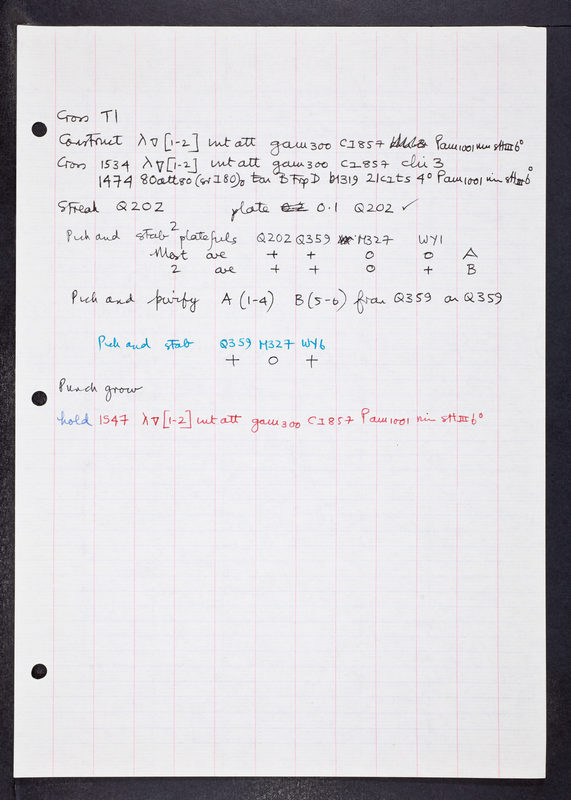 Cross T1
Construct λ∇[1-2] int att gam300 CI857 Pam1001 nin sHIII6°
Cross 1534 λ∇[1-2] int att gam300 CI857 chi 3
1474 80att80 (sr I80)° tar B trpD b1319 21cIts 4° Pam1001 nin sHIII6°
Streak Q202 plate 0.1 Q202 ✓
Pick and stab 2 platefuls Q202 Q359 M327 WY1
Most are + + 0 0 A
2 are + + 0 + B
Pick and purify A (1-4) B (5-6) from Q359 on Q359
Pick and stab Q359 M327 WY6
+ 0 +
Punch grow
hold 1547 λ∇[1-2] int att gam300 CI857 Pam1001 nin sHIII6°